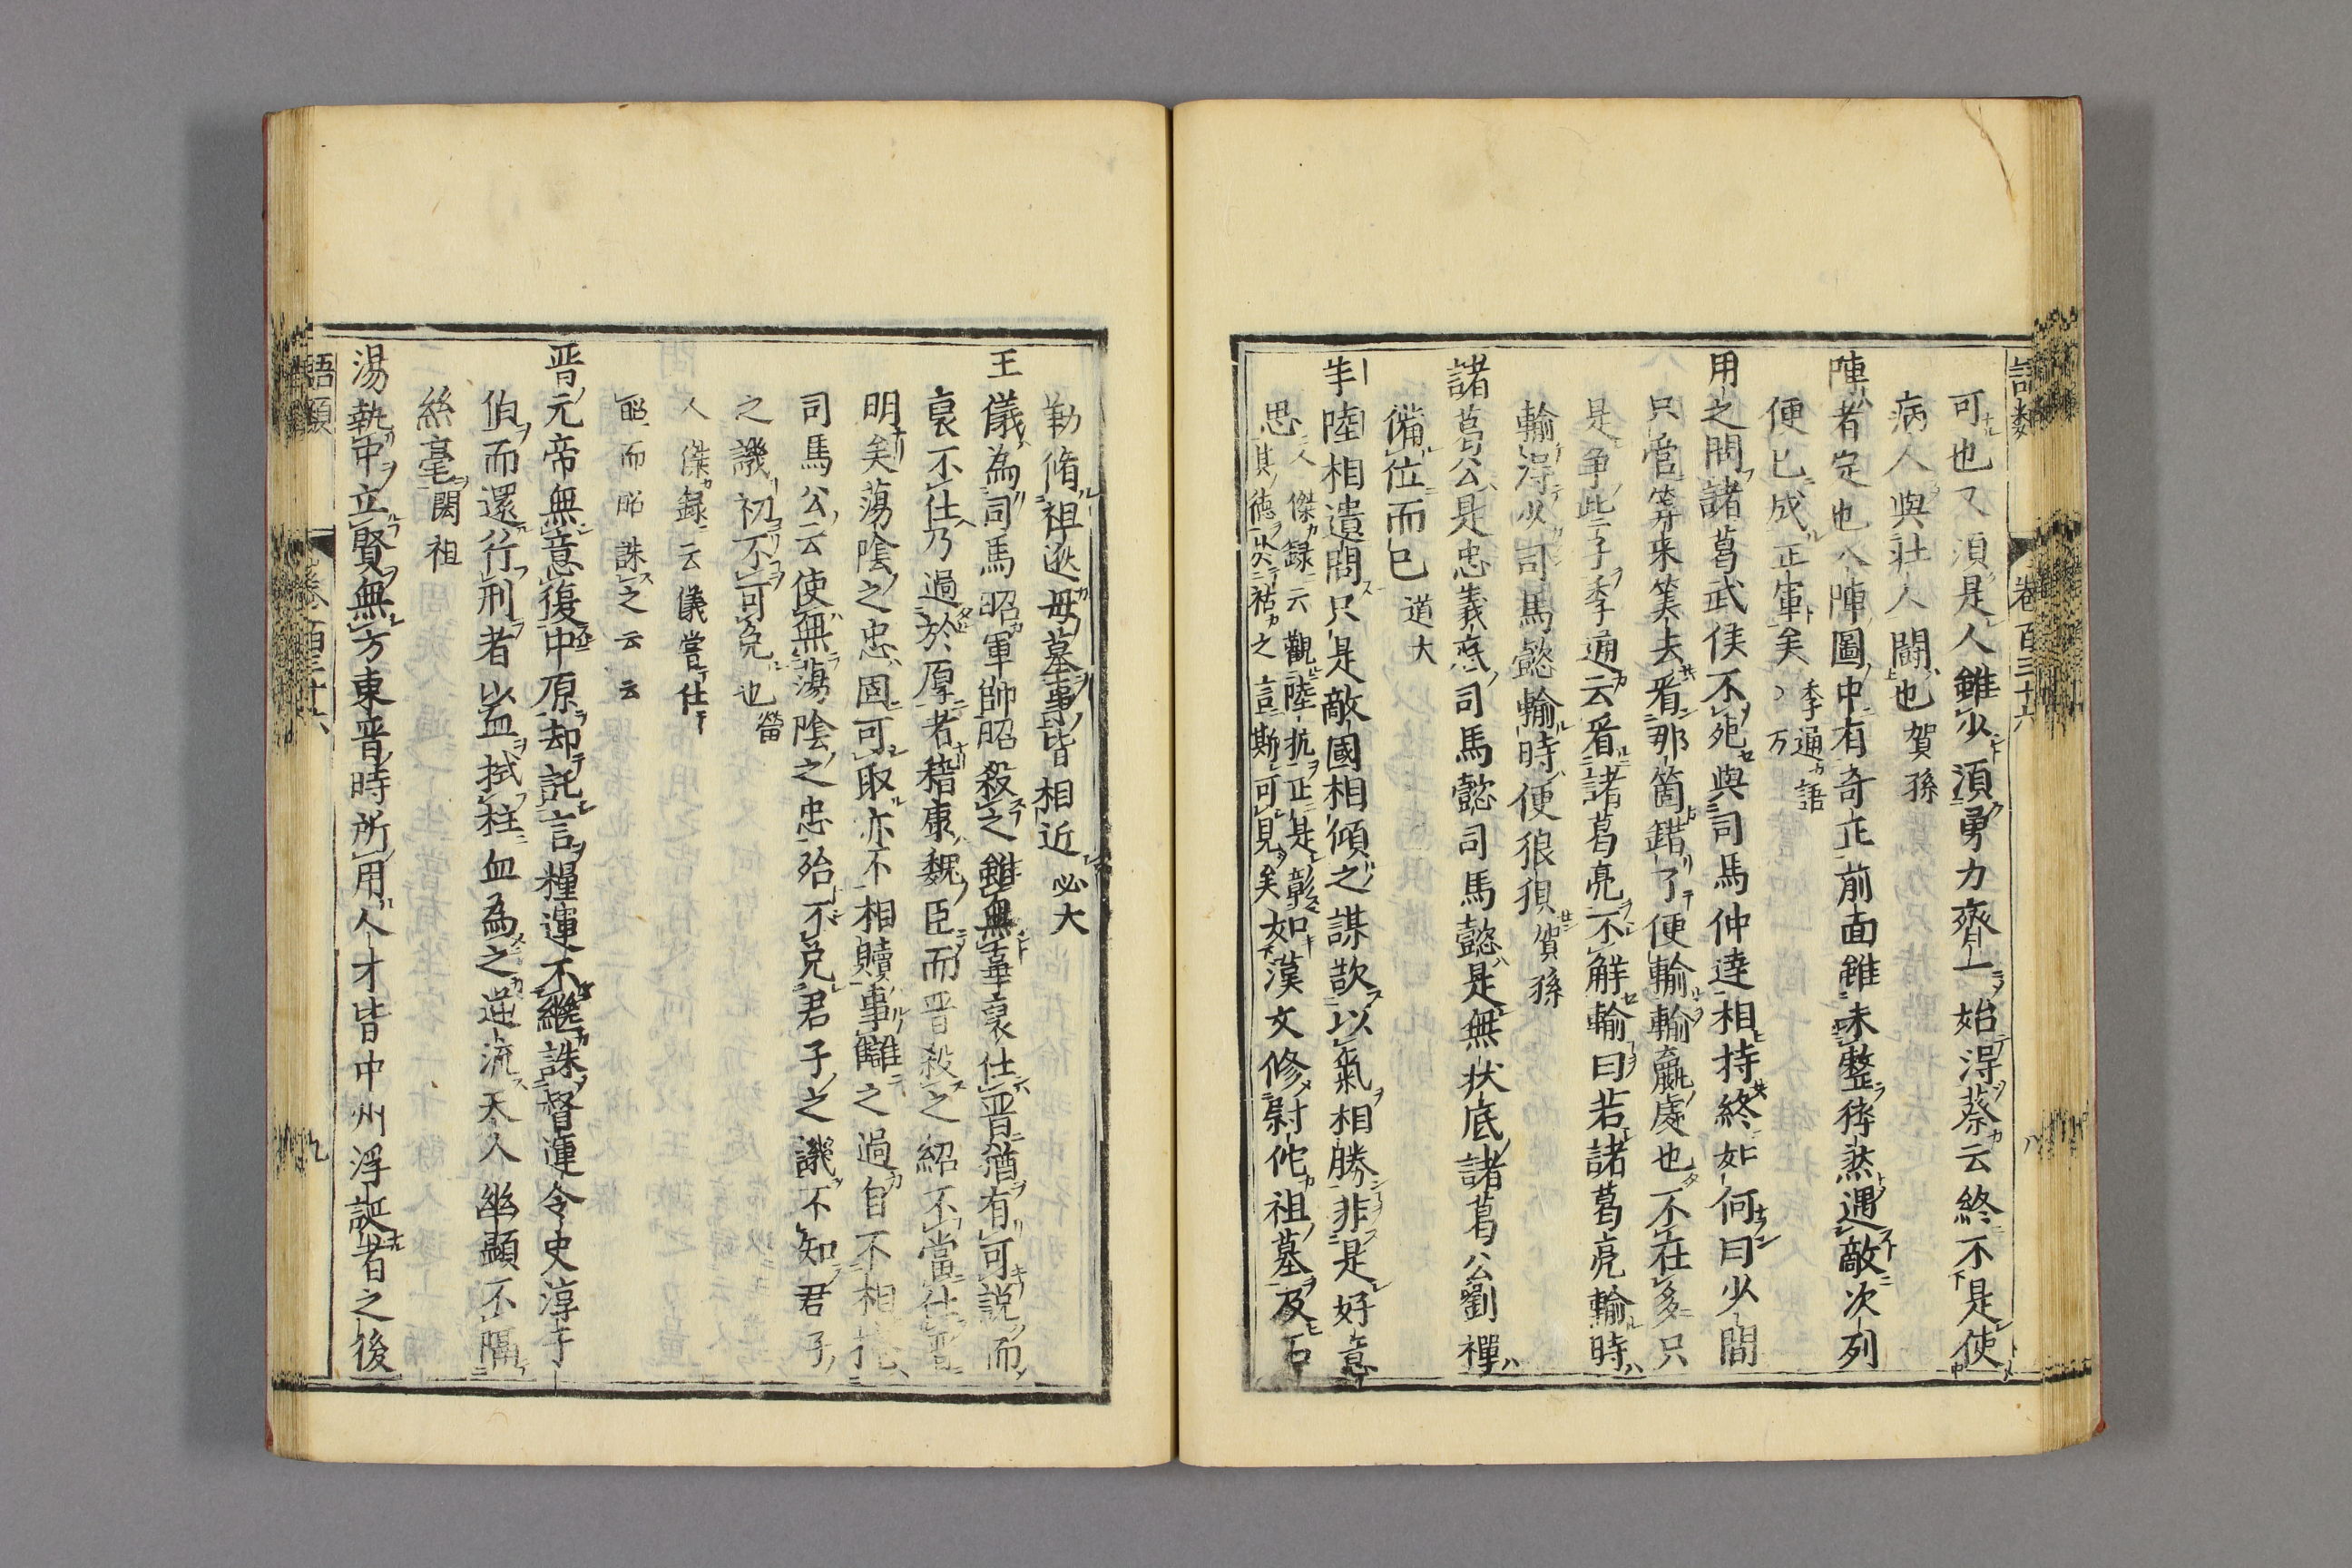 語類 卷百三十六 八
可也又須是人雖少須勇力齊一始得蔡云終不是使
病人與壯人鬪也賀孫
陣者定也八陣圖中有奇正前面雖未整猝然遇敵次列
便已成正軍矣季通語方
用之問諸葛武侯不死與司馬仲達相持終如何曰少間
只管筭來筭去看那箇錯了便輸輸贏處也不在多只
是爭此子季通云看諸葛亮不解輸曰若諸葛亮輸時
輸得少司馬懿輸時便狼狽賀孫
諸葛公是忠義底司馬懿司馬懿是無狀底諸葛公劉禪
備位而已道夫
羊陸相遺問只是敵國相傾之謀欲以氣相勝非是好意
思人傑録云觀陸抗正是彰其徳於祜之言斯可見矣如漢文修尉佗祖墓及石
勒脩祖逖母墓事皆相近必大
王儀為司馬昭軍師昭殺之雖無辜裒仕晉猶有可說而
裒不仕乃過於厚者嵇康魏臣而晉殺之紹不當仕晉
明矣蕩陰之忠固可取亦不相贖事讎之過自不相掩
司馬公云使無蕩陰之忠殆不免君子之譏不知君子
之譏初不可免也㽦
人傑録云儀嘗仕
昭而昭誅之云云
晉元帝無意復中原却託言糧運不繼誅督運令史淳于
伯而還行刑者以血拭柱血為之逆流天人幽顯不隔
絲毫閎祖
湯執中立賢無方東晉時所用人才皆中州浮誕者之後
語類 卷百三十六 九